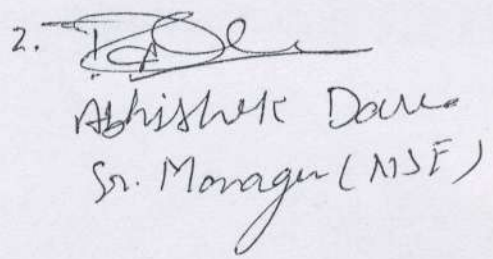 2.
Abhishek Dave
Sr. Manager (MSF)